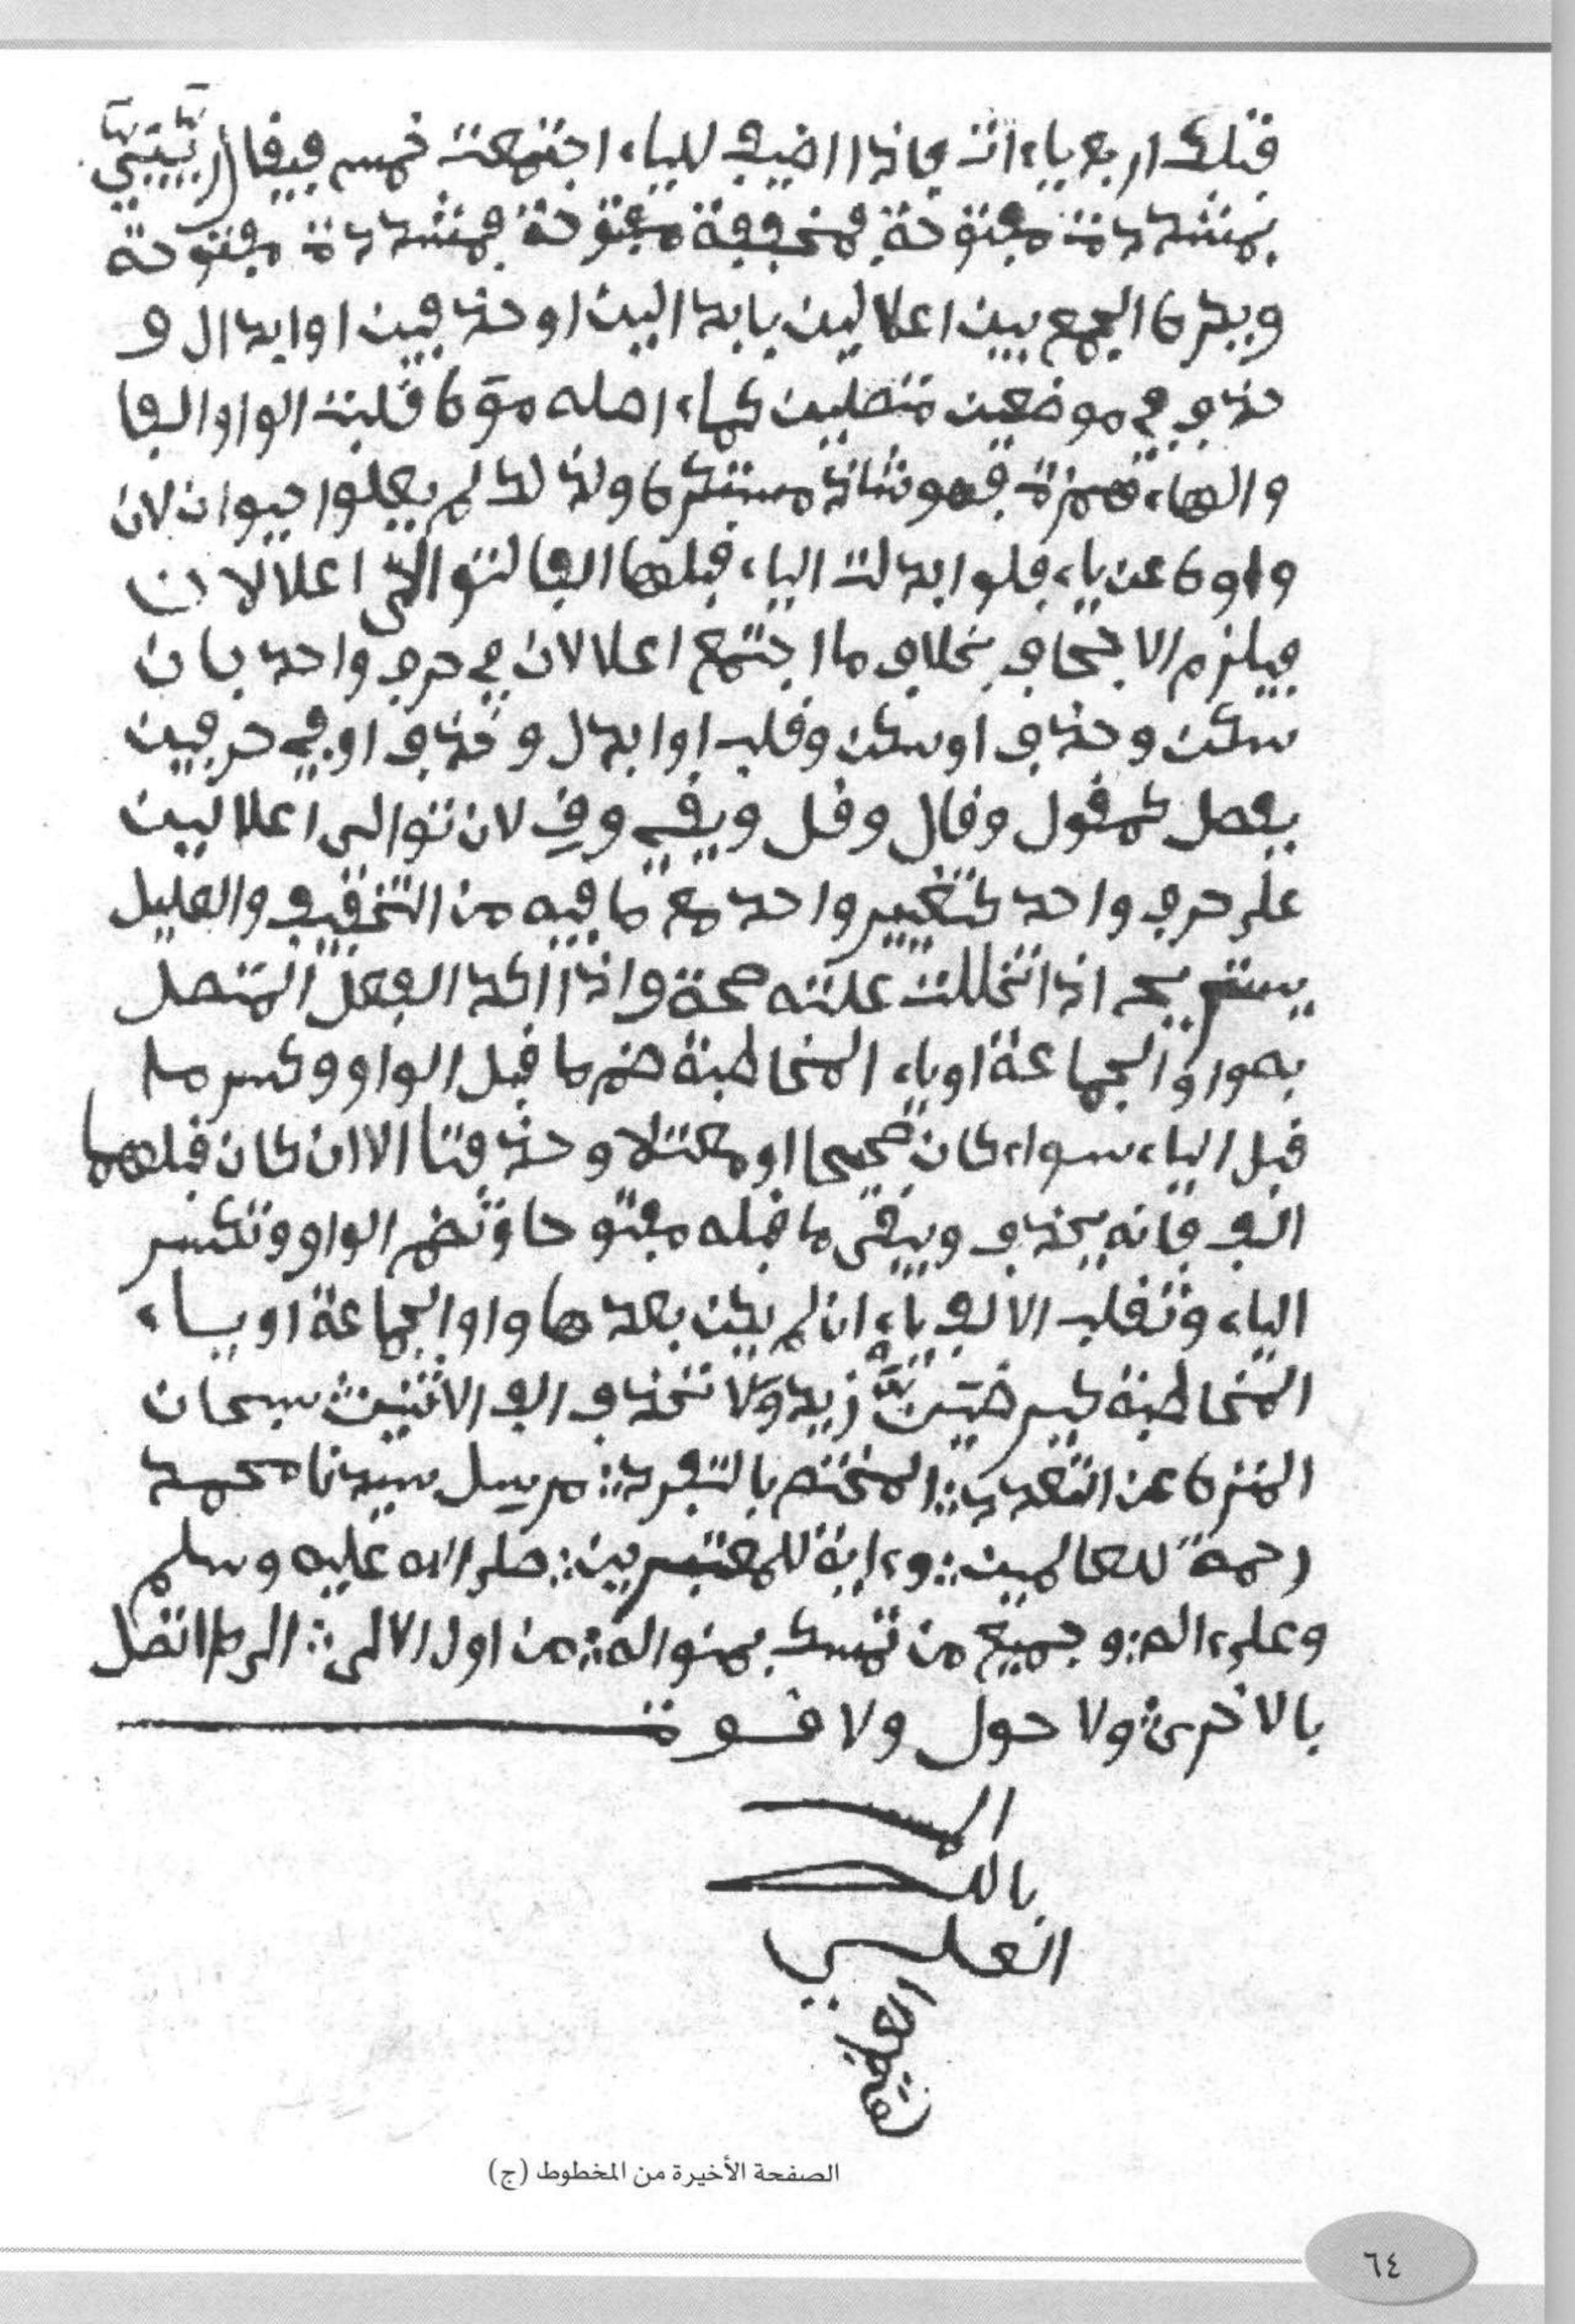 فتلك اربع ياءات فاذا اضيف للياء اجتمعت خمس فيقال ربيبيي
بمشددة مفتوحة فمخففة مفتوحة فمشددة مفتوحة
ويكره الجمع بين اعلالين بابدالين او حذفين او ابدال و
حذف في موضعين متصلين كماء اصله موه قلبت الواو الفا
والهاء همزة فهو شاذ مستكره ولذلك لم يعلوا حيوان لان
واوه عن ياء فلو ابدلت الياء قبلها الفا لتوالى اعلالان
فيلزم الاجحاف بخلاف ما اجتمع اعلالان في حرف واحد بان
سكن وحذف او سكن وقلب او ابدل وحذف او في حرفين
بفصل كمقول وقال وقل ويقي وق لان توالى اعلالين
على حرف واحد كتغيير واحد مع ما فيه من التخفيف والعليل
يستريح اذا تخللت علته صحة واذا اكد الفعل المتصل
به واو الجماعة او ياء المخاطبة ضم ما قبل الواو وكسر ما
قبل الياء سواء كان صحيحا او معتلا وحذفتا الا ان كان قبلهما
الف فانه يحذف ويبقى ما قبله مفتوحا وتضم الواو وتكسر
الياء وتقلب الالف ياء ان لم يكن بعدها واو الجماعة او ياء
المخاطبة زيد ولا تحذف الف الاثنين سبحان
المنزه عن التعديد المختم بالتفريد مرسل سيدنا محمد
رحمة للعالمين وءاية للمعتبرين صلى الله عليه وسلم
وعلى ءاله وجميع من تمسك بمنواله من اول الالى الى ما اتصل
بالاخرى ولا حول ولا قوة
الا
بالله
العلي
العظيم
الصفحة الأخيرة من المخطوط (ج)
٦٤